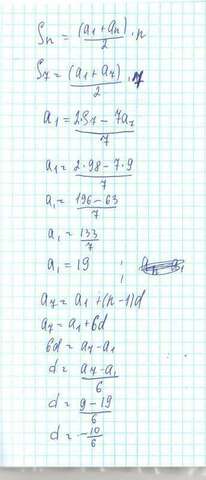 Sn = (a1 + an)/2 · n
S7 = (a1 + a7)/2 · 7
a1 = 2S7 - 7a7/7
a1 = 2·98 - 7·9/7
a1 = 196 - 63/7
a1 = 133/7
a1 = 19 ;
a7 = a1 + (n-1)d
a7 = a1 + 6d
6d = a7 - a1
d = a7 - a1/6
d = 9 - 19/6
d = -10/6